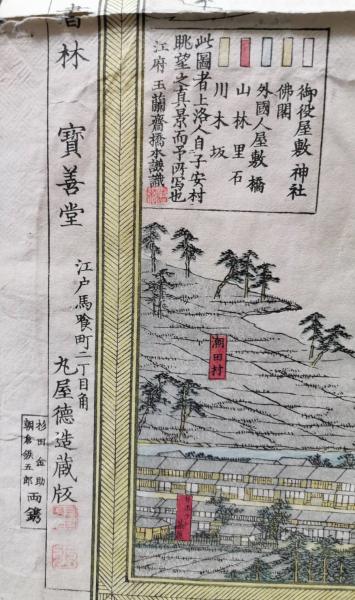 御役屋敷 神社
佛閣
外國人屋敷 橋
山 林 里 石
川 木 坂
此圖者上洛人自子安村
眺望之真景而予所写也
江府 玉蘭齋橋本謙識
潮田村
書林 寶善堂
江戸馬喰町二丁目角
丸屋德造蔵版
杉田金助
朝倉鉄五郎
両鐫